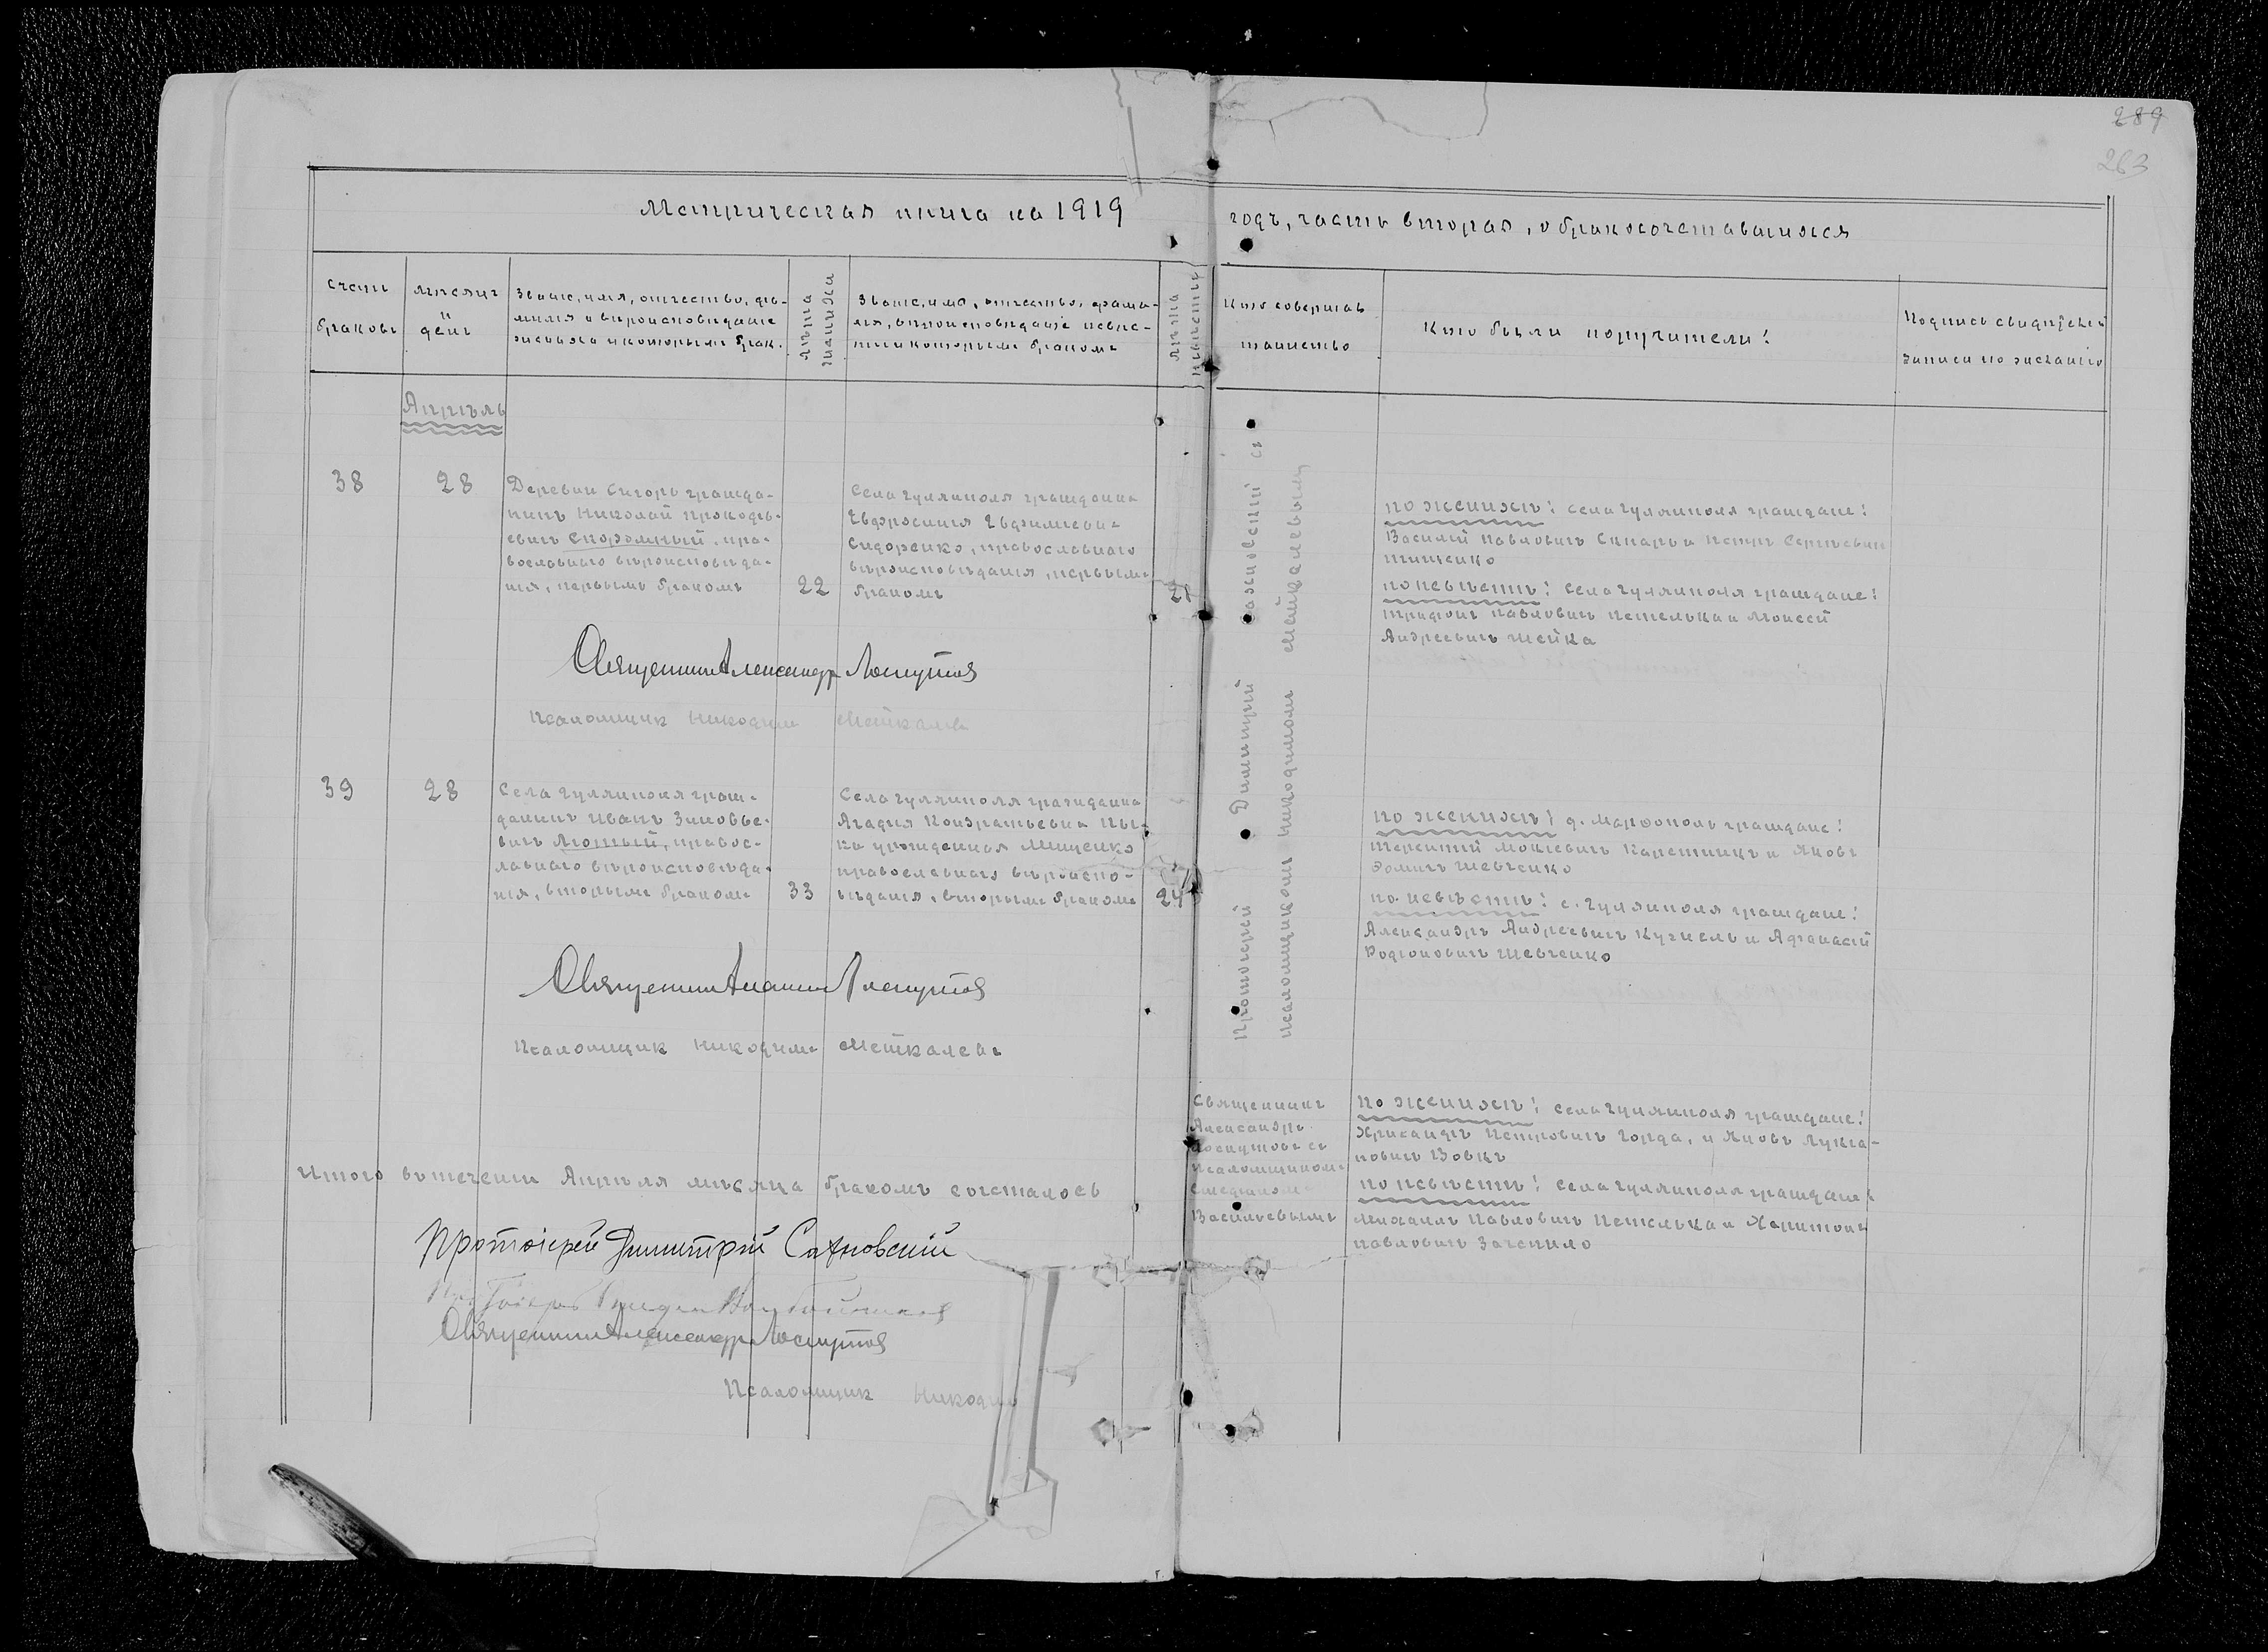 289
263
Метрическая книга на 1919
годъ, часть вторая, о бракосочетавшихся
Счетъ
браковъ
мѣсяцъ
день
Званіе, имя, отчество, фа-
милія и вѣроисповѣданіе
жениха и которымъ брак.
лѣта
жениха
Званіе, имя, отчество, фами-
лія, вѣроисповѣданіе невѣс-
ты и которымъ бракомъ
лѣта
невѣсты
Кто совершавъ
таинство
Кто были поручители:
Подпись свидѣтелей
записи по желанію
Апрѣль
38
28
Деревни гражда-
нинъ Николай Прокофь-
евичъ Скоромный, пра-
вославнаго вѣроисповѣда-
нія, первымъ бракомъ
22
Села Гуляйполя гражданка
Евфросинія Евфиміевна
Сидоренко, православнаго
вѣроисповѣданія, первымъ
бракомъ
21
по женихѣ: села Гуляйполя граждане:
Василій Павловичъ и Петръ Сергѣевичъ
Тищенко
по невѣстѣ: села Гуляйполя граждане:
Трифонъ Павловичъ Петелька и Моисей
Андреевичъ Шейка
Священник Александр Лоскутов
Псаломщик Никодим Меткалев
39
28
Села Гуляйполя граж-
данинъ Иванъ Зиновье-
вичъ Лютый, правос-
лавнаго вѣроисповѣда-
нія, вторымъ бракомъ
33
Села Гуляйполя гражданка
Агафія Кондратьевна
урожденная Мищенко
православнаго вѣроиспо-
вѣданія, вторымъ бракомъ
24
по женихѣ: д. Марфополь граждане:
Терентій Моисеевичъ и Яковъ
Фомичъ Шевченко
по невѣстѣ: с. Гуляйполя граждане:
Александръ Андреевичъ и Афанасій
Родіоновичъ Шевченко
Священник Лоскутов
Псаломщик Никодимъ Меткалевъ
Протоіерей Димитрій Сахновскій съ
псаломщикомъ Никодимомъ Меткалевымъ
Священникъ
Александръ
Лоскутовъ съ
псаломщикомъ
Васильевымъ
по женихѣ: села Гуляйполя граждане:
Хрисанфъ Петровичъ Горда, и Яковъ Лукіа-
новичъ Вовкъ
по невѣстѣ: села Гуляйполя граждане:
Михаилъ Павловичъ Петелька и Харитонъ
Павловичъ Зачепило
Итого въ теченіи Апрѣля мѣсяца бракомъ сочеталось
Протоіерей Димитрій Сахновскій
Священник Александр Лоскутов
Псаломщик Никодим